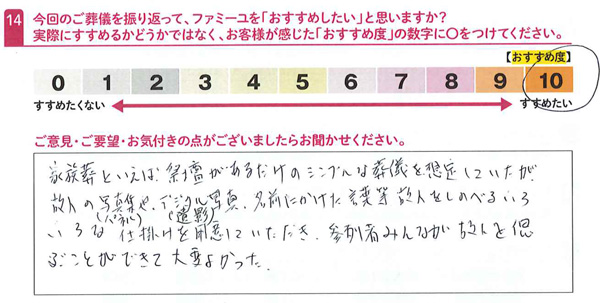 14 今回のご葬儀を振り返って、ファミーユを「おすすめしたい」と思いますか？
実際にすすめるかどうかではなく、お客様が感じた「おすすめ度」の数字に〇をつけてください。
【おすすめ度】
0 1 2 3 4 5 6 7 8 9 10
すすめたくない すすめたい
ご意見・ご要望・お気付きの点がございましたらお聞かせください。
家族葬といえば祭壇があるだけのシンプルな葬儀を想定していたが
故人の写真集や、デジタル写真、名前にかけた言葉等故人をしのべるいろ
(パネル) (遺影)
いろな仕掛けを用意していただき、参列者みんなが故人を偲
ぶことができて大変よかった。